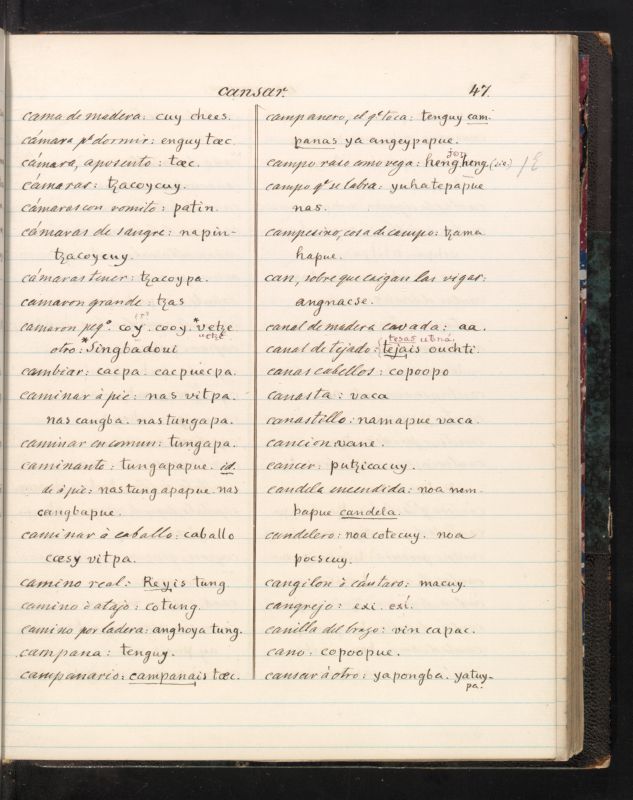 cansar.
47.
cama de madera: cuy chees.
cámara pª dormir: enguy tæc.
cámara, aposento: tæc.
cámaras: tzacoycuy.
cámaras con vomito: patin.
cámaras de sangre: napin-
tzacoycuy.
cámaras tener: tzacoypa.
camaron grande: tzas
camaron peqº. coy. cooy. *vetze
uetze
otro: *Singbadoui
cambiar: cacpa. cacpuecpa.
caminar à pie: nas vitpa.
nas cangba. nas tungapa.
caminar en comun: tungapa.
caminante: tungapapue. id.
de à pie: nas tungapapue. nas
cangbapue.
caminar à caballo: caballo
cæsy vitpa.
camino real: Reyis tung
camino ò atajo: cotung.
camino por ladera: anghoya tung.
campana: tenguy.
campanario: campanais tæc.
campanero, el qᵉ toca: tenguy cam-
panas ya angeypapue.
jon
campo raso como vega: heng heng (sic)
campo qᵉ se labra: yuhatepapue
nas.
campesino, cosa de campo: tzama
hapue.
can, sobre que caigan las vigas:
angnacse.
canal de madera cavada: aa.
tesas utsná.
canal de tejado: tejais ouchti.
canas cabellos: copoopo
canasta: vaca
canastillo: namapue vaca.
cancion vane.
cancer: putzicacuy.
candela encendida: noa nem-
papue candela.
candelero: noa cotecuy. noa
pocscuy.
cangilon ò cántaro: macuy.
cangrejo: exi. exí.
canilla del brazo: vin capac.
cano: copoopue.
cansar à otro: yapongba. yatuy-
pa.